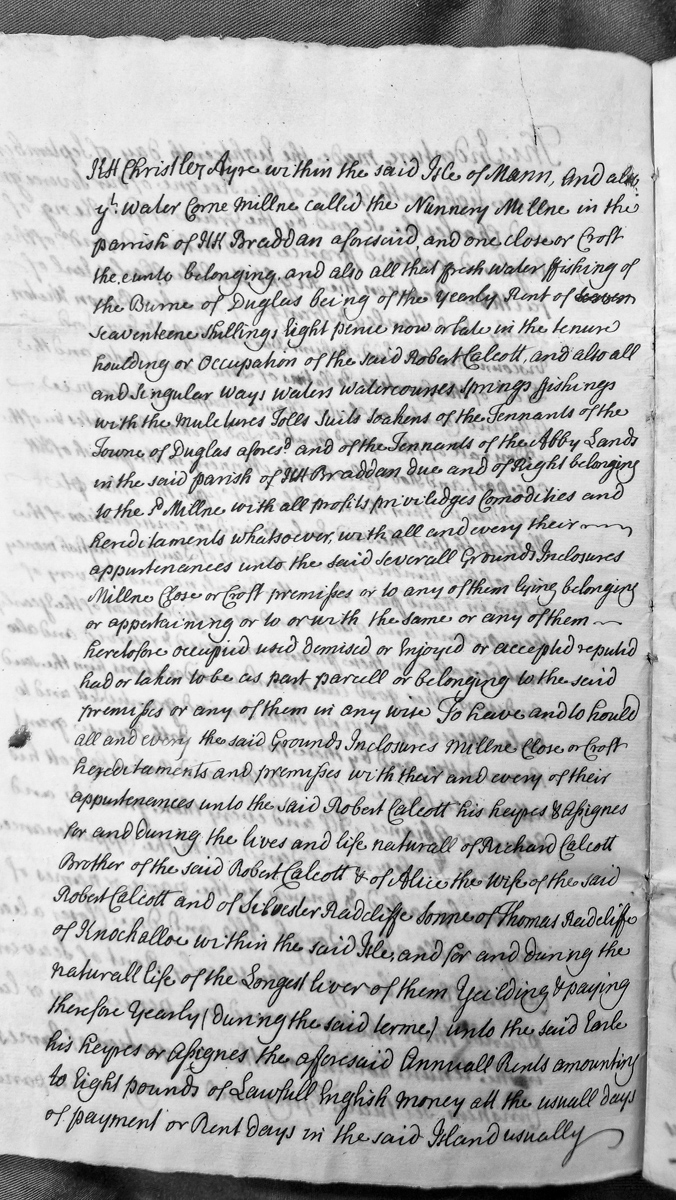 KK Christ lez Ayre within the said Isle of Mann, And also
yt. water Corne Millne called the Nunnery Millne in the
parrish of KK Braddan aforesaid, and one close or Croft
thereunto belonging, and also all that fresh water ffishing of
the Burne of Duglas being of the yearly Rent of seaven
seaventeene shillings Eight pence now or late in the tenure
houlding or Occupation of the said Robert Calcott, and also all
and singular ways waters watercourses springs ffishings
with the Mulctures Tolls Suits Soakens of the Tennants of the
Towne of Duglas aforesd. and of the Tennants of the Abby Lands
in the said parish of KK Braddan due and of Right belonging
to the sd. Millne with all profits priviledges Comodities and
hereditaments whatsoever, with all and every their
appurtenances unto the said severall Grounds Inclosures
Millne Close or Croft premisses or to any of them lying belonging
or appertaining or to or with the same or any of them
heretofore occupied used demised or Enjoyed or accepted reputed
had or taken to be as part parcell or belonging to the said
premisses or any of them in any wise To have and to hould
all and every the said Grounds Inclosures Millne Close or Croft
hereditaments and premisses with their and every of their
appurtenances unto the said Robert Calcott his heyres & Assignes
for and during the lives and life naturall of Richard Calcott
Brother of the said Robert Calcott & of Alice the Wife of the said
Robert Calcott and of Silvester Radcliffe Sonne of Thomas Radcliffe
of Knockalloe within the said Isle, and for and during the
naturall life of the Longest liver of them Yeilding & paying
therefore Yearly (during the said terme) unto the said Earle
his heyres or Assignes the afforesaid Annuall Rents amounting
to Eight pounds of Lawfull English money att the usuall days
of payment or Rent days in the said Island usually